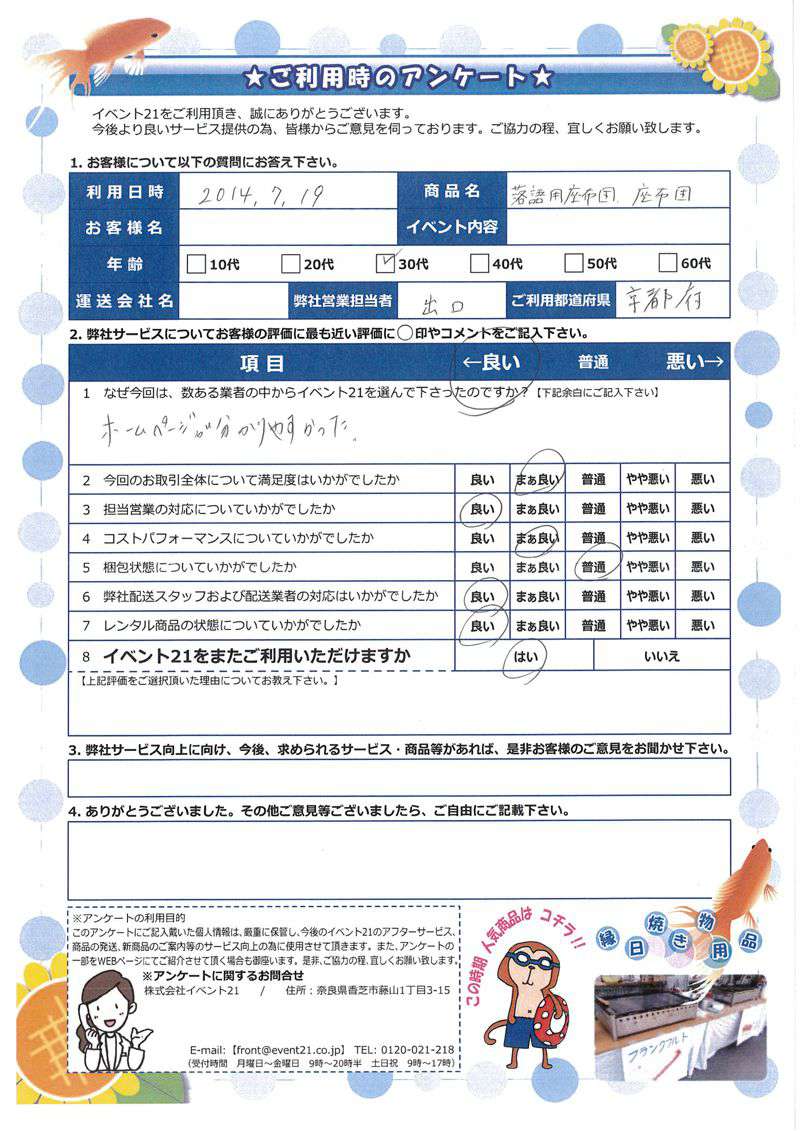 ★ご利用時のアンケート★
イベント21をご利用頂き、誠にありがとうございます。
今後より良いサービス提供の為、皆様からご意見を伺っております。ご協力の程、宜しくお願い致します。
1. お客様について以下の質問にお答え下さい。
利用日時 2014, 7, 19 商品名 落語用座布団、座布団
お客様名 イベント内容
年齢 10代 20代 30代 40代 50代 60代
運送会社名 弊社営業担当者 出口 ご利用都道府県 京都府
2. 弊社サービスについてお客様の評価に最も近い評価に○印やコメントをご記入下さい。
項目 ←良い 普通 悪い→
1 なぜ今回は、数ある業者の中からイベント21を選んで下さったのですか？【下記余白にご記入下さい】
ホームページが分かりやすかった。
2 今回のお取引全体について満足度はいかがでしたか 良い まぁ良い 普通 やや悪い 悪い
3 担当営業の対応についていかがでしたか 良い まぁ良い 普通 やや悪い 悪い
4 コストパフォーマンスについていかがでしたか 良い まぁ良い 普通 やや悪い 悪い
5 梱包状態についていかがでしたか 良い まぁ良い 普通 やや悪い 悪い
6 弊社配送スタッフおよび配送業者の対応はいかがでしたか 良い まぁ良い 普通 やや悪い 悪い
7 レンタル商品の状態についていかがでしたか 良い まぁ良い 普通 やや悪い 悪い
8 イベント21をまたご利用いただけますか はい いいえ
【上記評価をご選択頂いた理由についてお教え下さい。】
3. 弊社サービス向上に向け、今後、求められるサービス・商品等があれば、是非お客様のご意見をお聞かせ下さい。
4. ありがとうございました。その他ご意見等ございましたら、ご自由にご記載下さい。
※アンケートの利用目的
このアンケートにご記入戴いた個人情報は、厳重に保管し、今後のイベント21のアフターサービス、
商品の発送、新商品のご案内等のサービス向上の為に使用させて頂きます。また、アンケートの
一部をWEBページにてご紹介させて頂く場合も御座います。是非、ご協力の程、宜しくお願い致します。
※アンケートに関するお問合せ
株式会社イベント21 / 住所：奈良県香芝市藤山1丁目3-15
E-mail:【front@event21.co.jp】 TEL: 0120-021-218
(受付時間 月曜日～金曜日 9時～20時半 土日祝 9時～17時)
この時期 人気商品は コチラ!!
縁日焼き物用品
フランクフルト